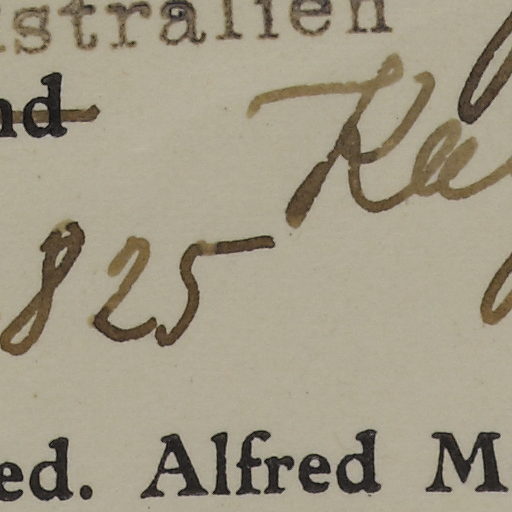 stralien
nd
Ka
825
ed. Alfred M